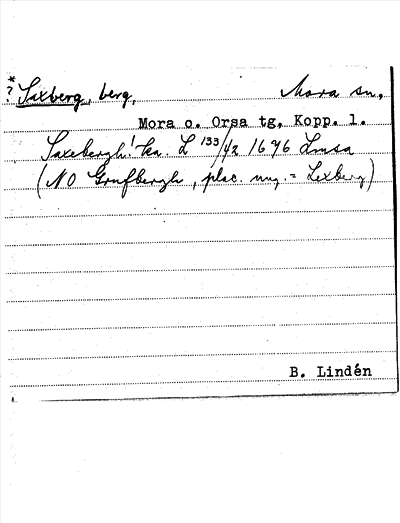 *
? Saxberg, berg, Mora sn,
Mora o. Orsa tg, Kopp. l.
Saxebergh! ka. L 133/42 1696 Lmsa
(NO Grufbergh, plac. = Lexberg)
B. Lindén